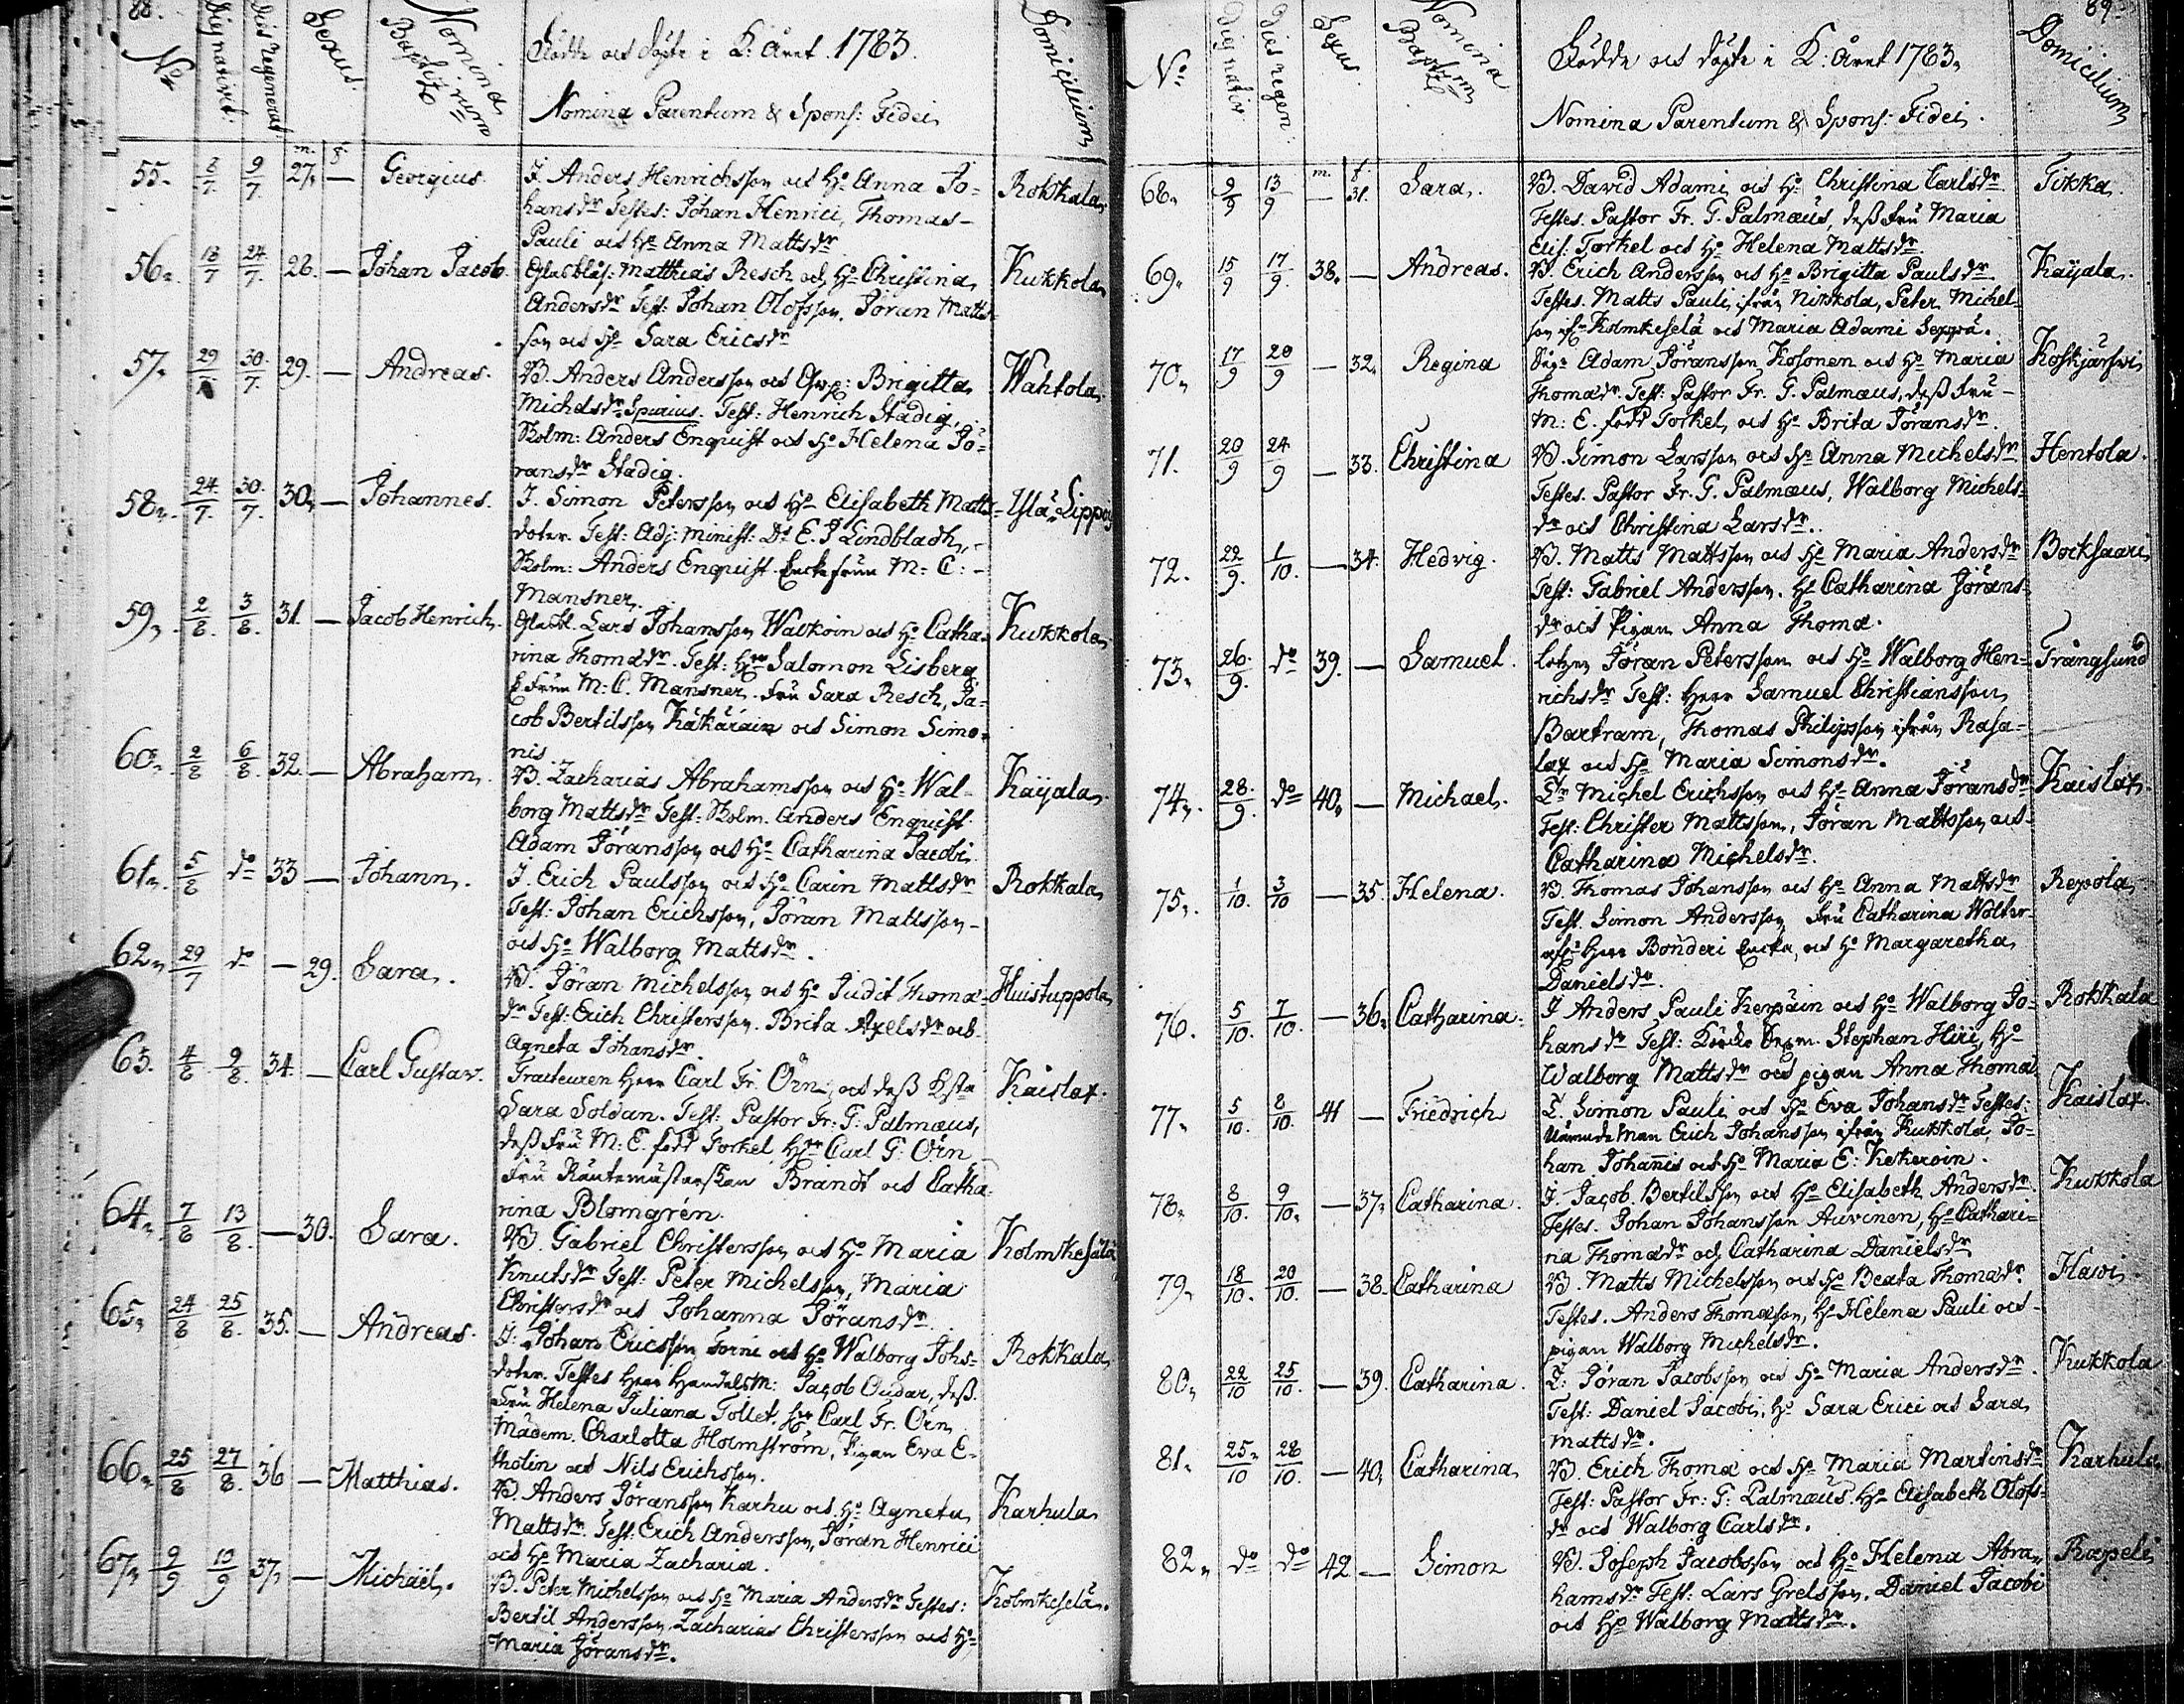 88.
No
Dies nativit:
Dies regenerat:
Sexus.
Nomina Baptizatorum
Födde och döpte i K: Året 1783.
Nomina Parentum & Spons: Fidei
Domicilium
m. f.
55. 8/7 9/7. 27. — Georgius. J. Anders Henrichsson och Ho Anna Jo= Rokkala
hansdr Testes: Johan Henrici, Thomas
Pauli och Ho Anna Mattsdr
56. 18/7 24/7. 28. — Johan Jacob. Glasblås: Matthias Resch och Ho Christina Kukkola
Andersdr Test: Johan Olofsson, Jöran Matts
son och Ho Sara Ericsdr
57. 29 30/7. 29. — Andreas. B. Anders Andersson och Brigitta Wahtola
Michelsdr Spurius. Test: Henrich Stadig,
Skolm: Anders Enquist och Ho Helena Jö=
ransdr Stadig.
58. 24/7. 30/7. 30. — Johannes. J. Simon Petersson och Ho Elisabeth Matts= Ylä Lippola
doter. Test: Adj: Minist: Dr E. J Lindbladh,
Skolm: Anders Enquist Enckefrun M: C:
Mansner.
59. 2/8. 3/8. 31. — Jacob Henrich. Lars Johansson Walkoin och Ho Catha= Kukkola
rina Thomædr. Test: Hrr Salomon Lisberg
Efrun M: C. Mansner. Fru Sara Resch, Ja=
cob Bertilsson Käkäräin och Simon Simo=
nis
60. 2/8 6/8. 32. — Abraham. B. Zacharias Abrahamsson och Ho Wal= Kaÿala
borg Mattsdr Test: Skolm. Anders Enquist
Adam Jöransson och Ho Catharina Jacobi.
61. 5/8 do 33 — Johann. J. Erich Paulsson och Ho Carin Mattsdr Rokkala
Test: Johan Erichsson, Jöran Mattsson
och Ho Walborg Mattsdr.
62. 29/7 do — 29. Sara. B. Jöran Michelsson och Ho Judit Thomæ= Huistuppola
dr Test: Erich Christersson. Brita Axelsdr och
Agneta Johansdr
63. 4/8 9/8. 34. — Carl Gustav. Tracteuren Herr Carl Fr. Örn, och dess Ksta Kaislax
Sara Soldan. Test: Pastor Fr: G: Palmæus,
dess fru M: E. född Forkel, Hr Carl G: Örn
Fru Räntemästarskan Brandt och Catha=
rina Blomgrén.
64. 7/8 13/8. — 30. Sara. B. Gabriel Christersson och Ho Maria Kolmkesälä
Knutsdr Test: Peter Michelsson, Maria
Christersdr och Johanna Jöransdr.
65. 24/8 25/8. 35. — Andreas. J. Johan Ericsson Torni och Ho Walborg Johs= Rokkala
doter. Testes Herr Handelsm: Jacob Oudar, dess
Fru Helena Juliana Tollet. Hr Carl Fr. Örn,
Madem. Charlotta Holmström, Pigan Eva E=
tholin och Nils Erichsson.
66. 25/8 27/8. 36 — Matthias. B. Anders Jöransson Karhu och Ho Agneta Karhula
Mattsdr. Test: Erich Andersson, Jöran Henrici
och Ho Maria Zachariæ.
67. 9/9 10/9 37. — Michaël. B. Peter Michelsson och Ho Maria Andersdr Testes: Kolmkeselä.
Bertil Andersson, Zacharias Christersson och Ho
Maria Jöransdr.
89.
No
Dies nativ
Dies regen:
Sexus.
Nomina Baptizm
Födde och döpte i K: Året 1783.
Nomina Parentum & Spons: Fidei.
Domicilium
m. f.
68. 9/9 13/9 — 31. Sara. B. David Adami och Ho Christina Carlsdr Tikka.
Testes. Pastor Fr. G. Palmæus, dess fru Maria
Elis: Forkel och Ho Helena Mattsdr.
69. 15/9 17/9. 38. — Andreas. B. Erich Andersson och Ho Brigitta Paulsdr. Kaÿala.
Testes. Matts Pauli ifrån Nikkola, Peter Michel=
son ifr Kolmkeselä och Maria Adami Seppä.
70. 17/9 20/9 — 32. Regina Adam Jöransson Kosonen och Ho Maria Koskjärfwi
Thomædr. Test: Pastor Fr. G. Palmæus, dess fru
M: E. född Forkel, och Ho Brita Jöransdr.
71. 20/9 24/9 — 33. Christina B. Simon Larsson och Ho Anna Michelsdr Hentola.
Testes. Pastor Fr. G. Palmæus, Walborg Michels=
dr och Christina Larsdr.
72. 29/9. 1/10. — 34. Hedvig. B. Matts Mattsson och Ho Maria Andersdr Borksaari
Test: Gabriel Andersson. Ho Catharina Jörans=
dr och Pigan Anna Thomæ.
73. 26/9. do 39. — Samuel. Lotzen Jöran Petersson och Ho Walborg Hen= Trångsund
richsdr Test: Herr Samuel Christiansson
Bartram, Thomas Philipsson ifrån Rasa=
lax och Ho Maria Simonsdr.
74. 28/9. do 40. — Michael. Michel Erichsson och Ho Anna Jöransdr Kaislax.
Test: Christer Mattsson, Jöran Mattsson och
Catharina Michelsdr.
75. 1/10. 3/10 — 35. Helena. B. Thomas Johansson och Ho Anna Mattsdr Repola
Test. Simon Andersson, Fru Catharina Wolter
Herr Bonderi Encka, och Ho Margaretha
Danielsdr.
76. 5/10. 7/10. — 36. Catharina. J Anders Pauli Kerpäin och Ho Walborg Jo= Rokkala
hansdr Test: Stephan Hiri, Ho
Walborg Mattsdr och pigan Anna Thomæ
77. 5/10. 8/10. 41 — Friedrich Simon Pauli och Ho Eva Johansdr Testes: Kaislax.
Nämndeman Erich Johansson ifrån Kukkola, Jo=
han Johannis och Ho Maria E: Kekeroin.
78. 8/10. 9/10. — 37. Catharina. J. Jacob Bertilsson och Ho Elisabeth Andersdr. Kukkola
Testes. Johan Johansson Auvinen, Ho Cathari=
na Thomædr och Catharina Danielsdr
79. 18/10. 20/10. — 38. Catharina B. Matts Michelsson och Ho Beata Thomædr. Hawi.
Testes. Anders Thomæson, Ho Helena Pauli och
pigan Walborg Michelsdr.
80. 22/10 25/10. — 39. Catharina. Jöran Jacobsson och Ho Maria Andersdr. Kukkola
Test: Daniel Jacobi, Ho Sara Erici och Sara
Mattsdr.
81. 25/10 28/10. — 40. Catharina. B. Erich Thomæ och Ho Maria Martinsdr Karhula
Test: Pastor Fr: G: Palmæus. Ho Elisabeth Olofs=
dr och Walborg Carlsdr.
82. do do 42 — Simon B. Joseph Jacobsson och Ho Helena Abra= Rapeli
hamsdr Test: Lars Grelsson, Daniel Jacobi
och Ho Walborg Mattsdr.